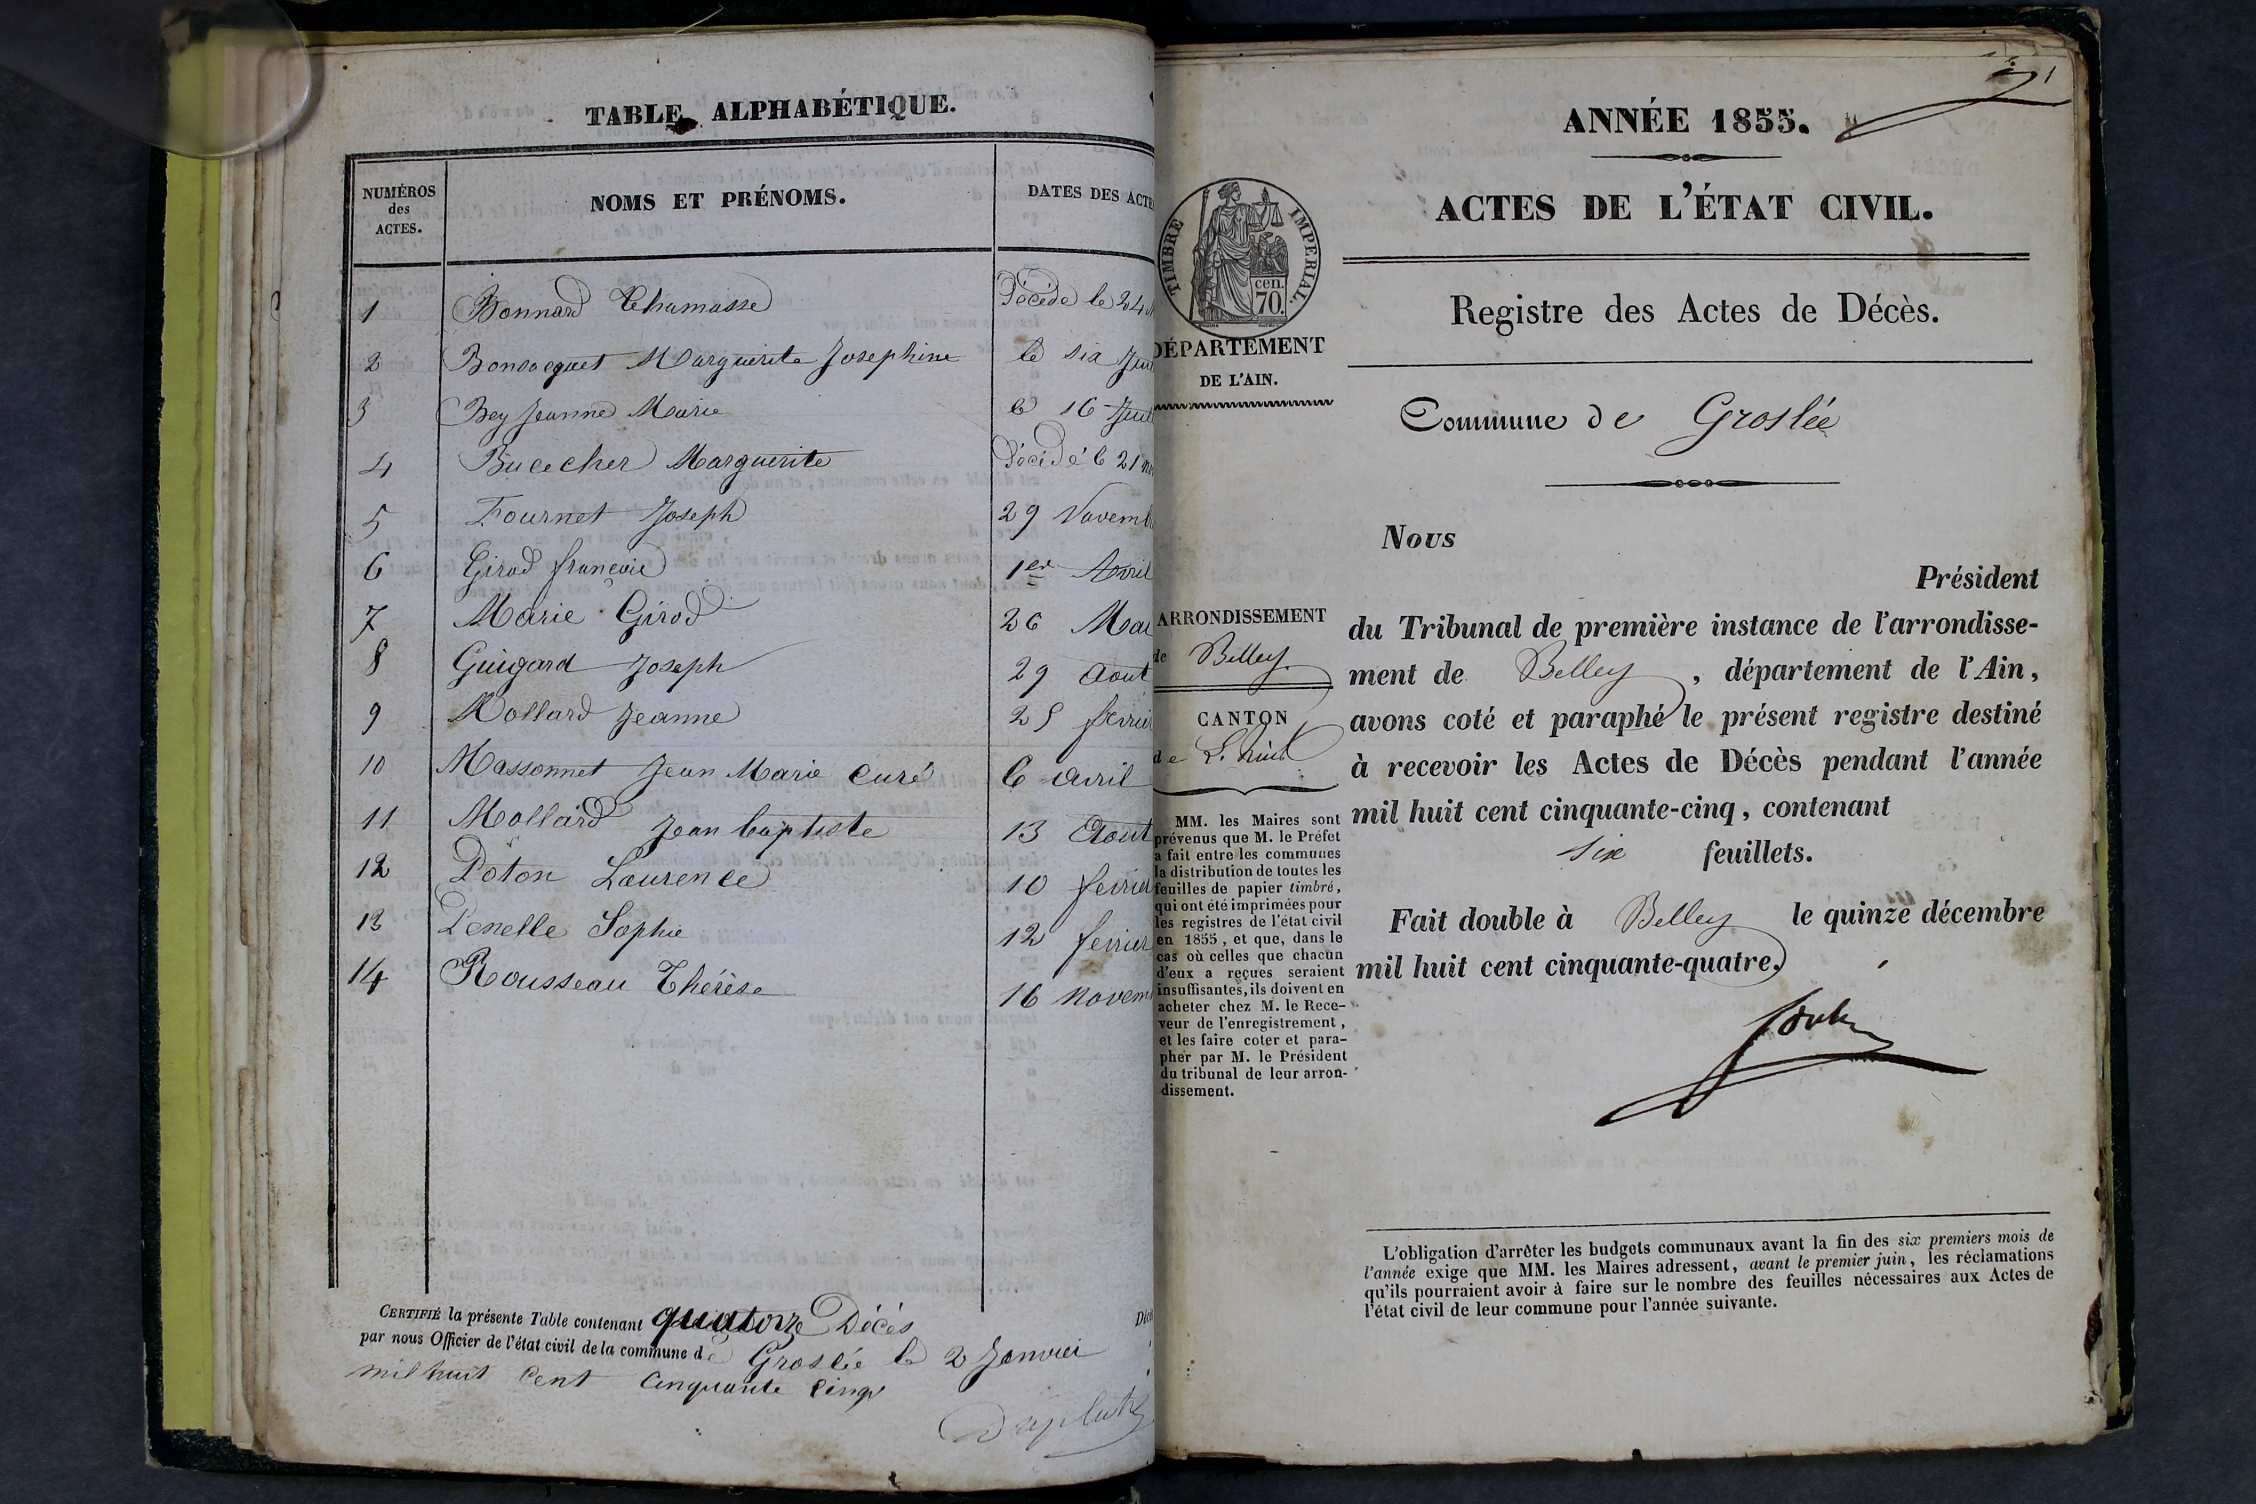 TABLE ALPHABÉTIQUE.
NUMÉROS des ACTES.
NOMS ET PRÉNOMS.
DATES DES ACTE
1 Bonnard Thomasse Décéde le 24
2 Marguerite Josephine le six
3 Bey Jeanne Marie le 16
4 Bucecher Marguerite Décédé le 21
5 Fournet Joseph 29 Novemb
6 Girod françois 1er Avril
7 Marie Girod 26 Mai
8 Guigard Joseph 29 Aout
9 Mollard Jeanne 25 fevrier
10 Massonnet Jean Marie Curé 6 avril
11 Mollard Jean baptiste 13 Aout
12 Poton Laurence 10 fevrier
13 Penelle Sophie 12 fevrier
14 Rousseau Thérèse 16 novem
CERTIFIÉ la présente Table contenant quatorze Décès
par nous Officier de l'état civil de la commune de Groslée le 2 Janvier
mil huit cent cinquante cinq
1
ANNÉE 1855.
ACTES DE L'ÉTAT CIVIL.
TIMBRE IMPERIAL.
cen.
70.
Registre des Actes de Décès.
DÉPARTEMENT
DE L'AIN.
Commune de Groslée
Nous
Président
du Tribunal de première instance de l'arrondisse-
ment de Belley, département de l'Ain,
avons coté et paraphé le présent registre destiné
à recevoir les Actes de Décès pendant l'année
mil huit cent cinquante-cinq, contenant
six feuillets.
Fait double à Belley le quinze décembre
mil huit cent cinquante-quatre.
ARRONDISSEMENT
de Belley
CANTON
de
MM. les Maires sont
prévenus que M. le Préfet
a fait entre les communes
la distribution de toutes les
feuilles de papier timbré,
qui ont été imprimées pour
les registres de l'état civil
en 1855, et que, dans le
cas où celles que chacun
d'eux a reçues seraient
insuffisantes, ils doivent en
acheter chez M. le Rece-
veur de l'enregistrement,
et les faire coter et para-
pher par M. le Président
du tribunal de leur arron-
dissement.
L'obligation d'arrêter les budgets communaux avant la fin des six premiers mois de
l'année exige que MM. les Maires adressent, avant le premier juin, les réclamations
qu'ils pourraient avoir à faire sur le nombre des feuilles nécessaires aux Actes de
l'état civil de leur commune pour l'année suivante.